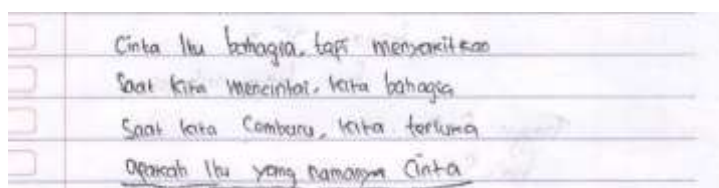 Cinta Itu bahagia, tapi menyakitkan
Saat kita mencintai, kita bahagia
Saat kita Cemburu, kita terluka
apakah Itu yang namanya Cinta